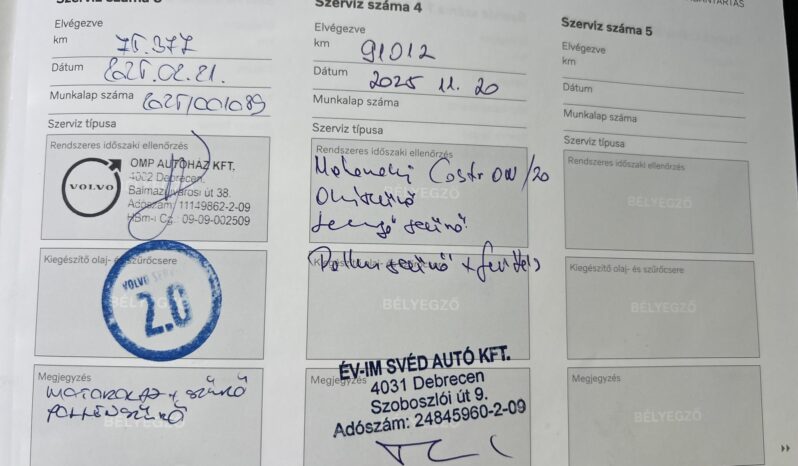 Szerviz száma 4
Szerviz száma 5
Elvégezve
km 75.377
Dátum 2025.02.21.
Munkalap száma 2025/001089
Szerviz típusa
Rendszeres időszaki ellenőrzés
VOLVO
OMP AUTÓHÁZ KFT.
4002 Debrecen,
Balmazújvárosi út 38.
Adószám: 11149862-2-09
Cz.: 09-09-002509
Kiegészítő olaj- és szűrőcsere
VOLVO SERVICE
2.0
Megjegyzés
MOTOROLAJ + SZŰRŐ
POLLENSZŰRŐ
Elvégezve
km 91012
Dátum 2025 11. 20
Munkalap száma
Szerviz típusa
Rendszeres időszaki ellenőrzés
Castr 0W/20
Olajszűrő
Levegő szűrő
Pollenszűrő +
Kiegészítő olaj- és szűrőcsere
BÉLYEGZŐ
Megjegyzés
ÉV-IM SVÉD AUTÓ KFT.
4031 Debrecen
Szoboszlói út 9.
Adószám: 24845960-2-09
Elvégezve
km
Dátum
Munkalap száma
Szerviz típusa
Rendszeres időszaki ellenőrzés
BÉLYEGZŐ
Kiegészítő olaj- és szűrőcsere
BÉLYEGZŐ
Megjegyzés
BÉLYEGZŐ